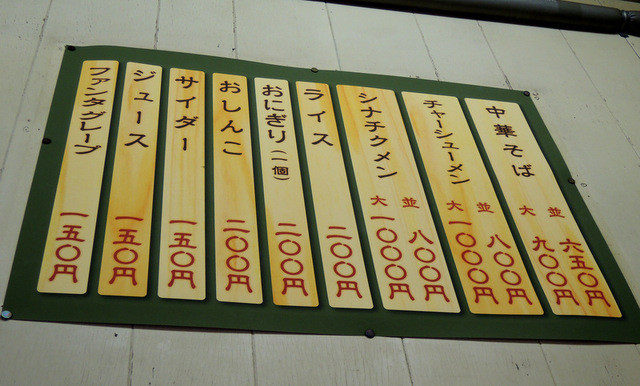 中華そば
並 六五〇円
大 九〇〇円
チャーシューメン
並 八〇〇円
大 一〇〇〇円
シナチクメン
並 八〇〇円
大 一〇〇〇円
ライス
二〇〇円
おにぎり(一個)
二〇〇円
おしんこ
二〇〇円
サイダー
一五〇円
ジュース
一五〇円
ファンタグレープ
一五〇円